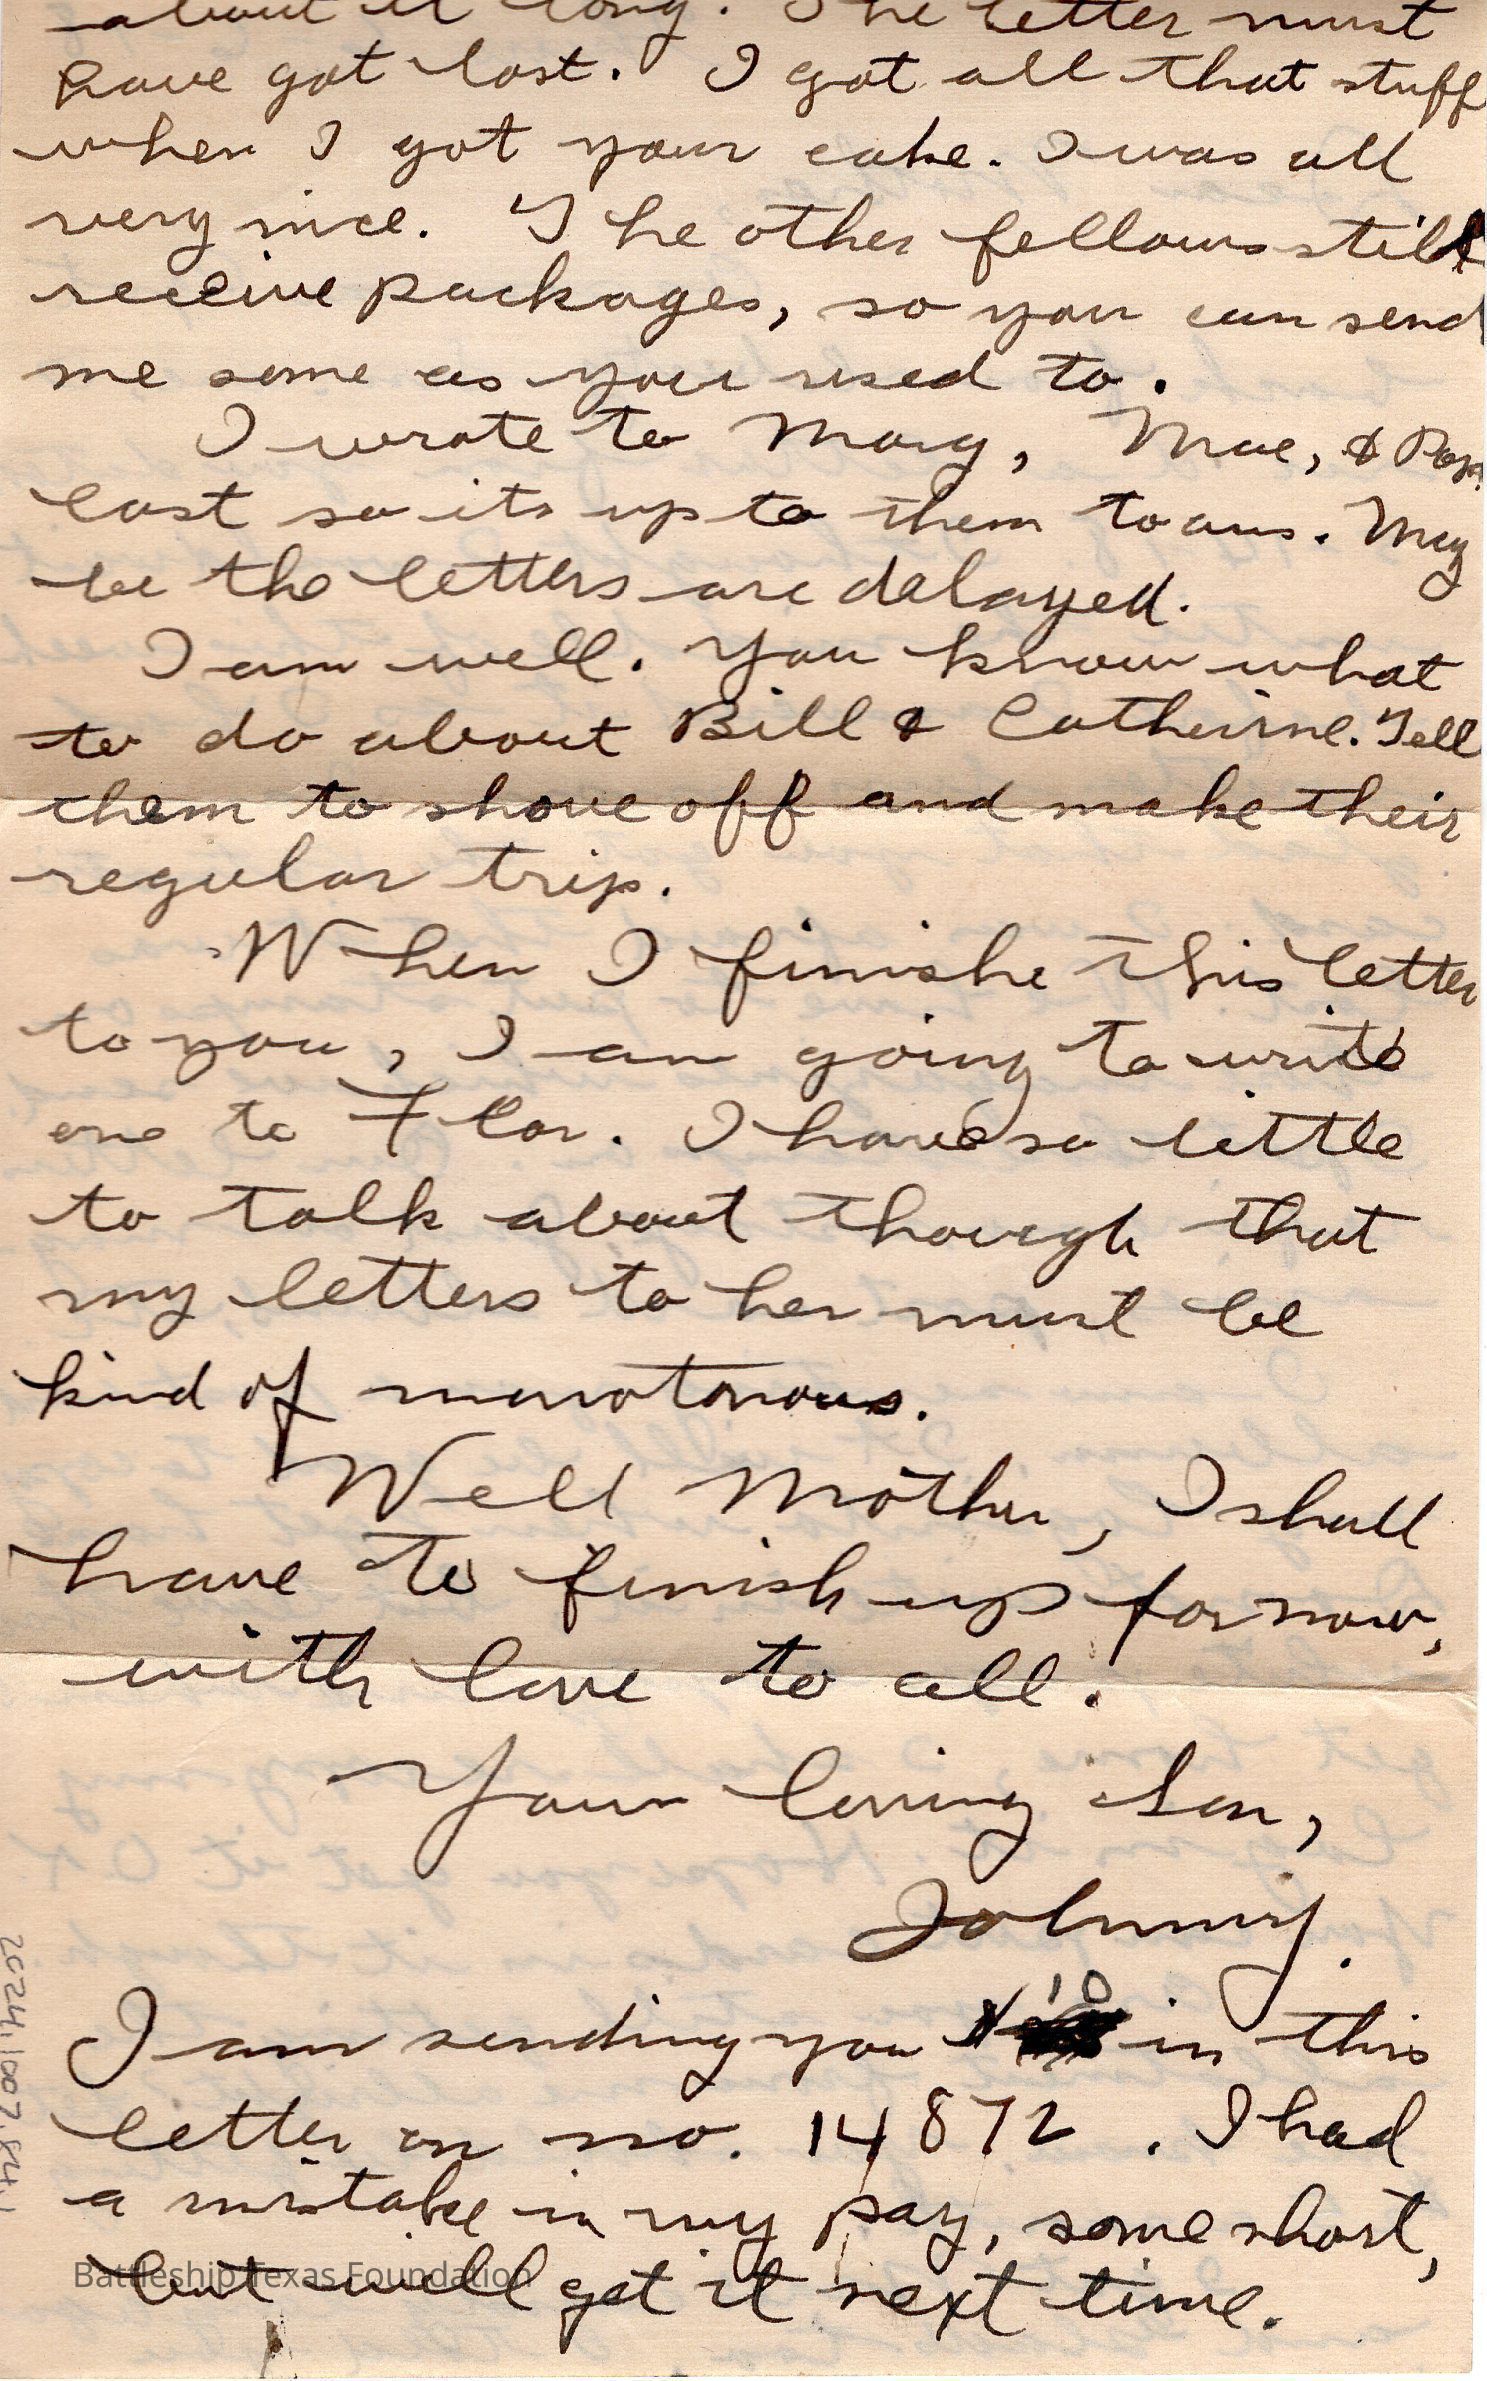 about it long. The letter must
have got lost. I got all that stuff
when I got your cake. I was all
very nice. The other fellows still
receive packages, so you can send
me some as you used to.
I wrote to Mary, Mae, & Pop
last so its up to them to ans. May
be the letters are delayed.
I am well. You know what
to do about Bill & Catheirne. Tell
them to shove off and make their
regular trip.
When I finishe this letter
to you, I am going to write
one to Flor. I have so little
to talk about though that
my letters to her must be
kind of monotonous.
Well Mother, I shall
have to finish up for now,
with love to all.
Your loving Son,
Johnny.
I am sending you 10 in this
letter on no. 14872. I had
a mistake in my pay, some short,
but will get it next time.
2024.1007.84.1
Battleship Texas Foundation